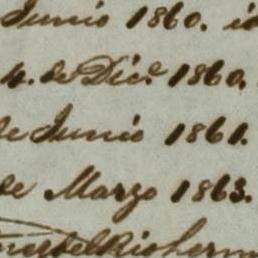 Junio 1860.
4. de Dice. 1860.
de Junio 1861.
de Marzo 1863.